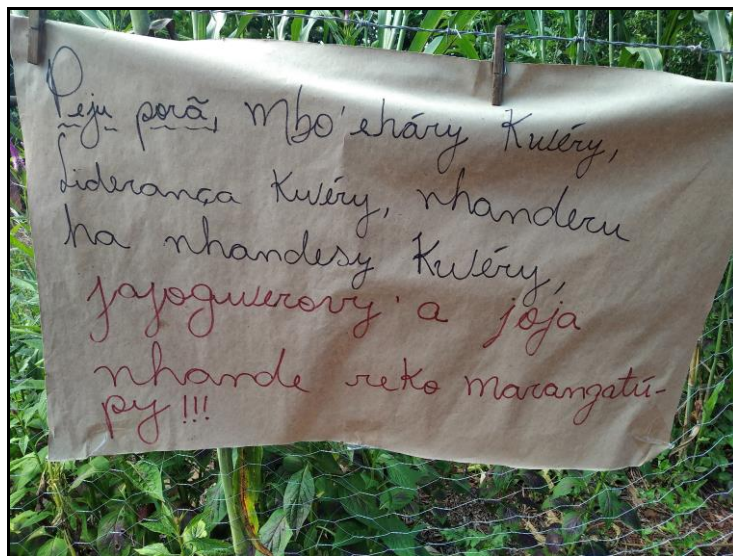 Peju porã, Mbo'eháry Kuéry,
Liderança Kuéry, nhanderu
ha nhandesy Kuéry,
jajoguerovy'a joja
nhande reko marangatú-
py!!!